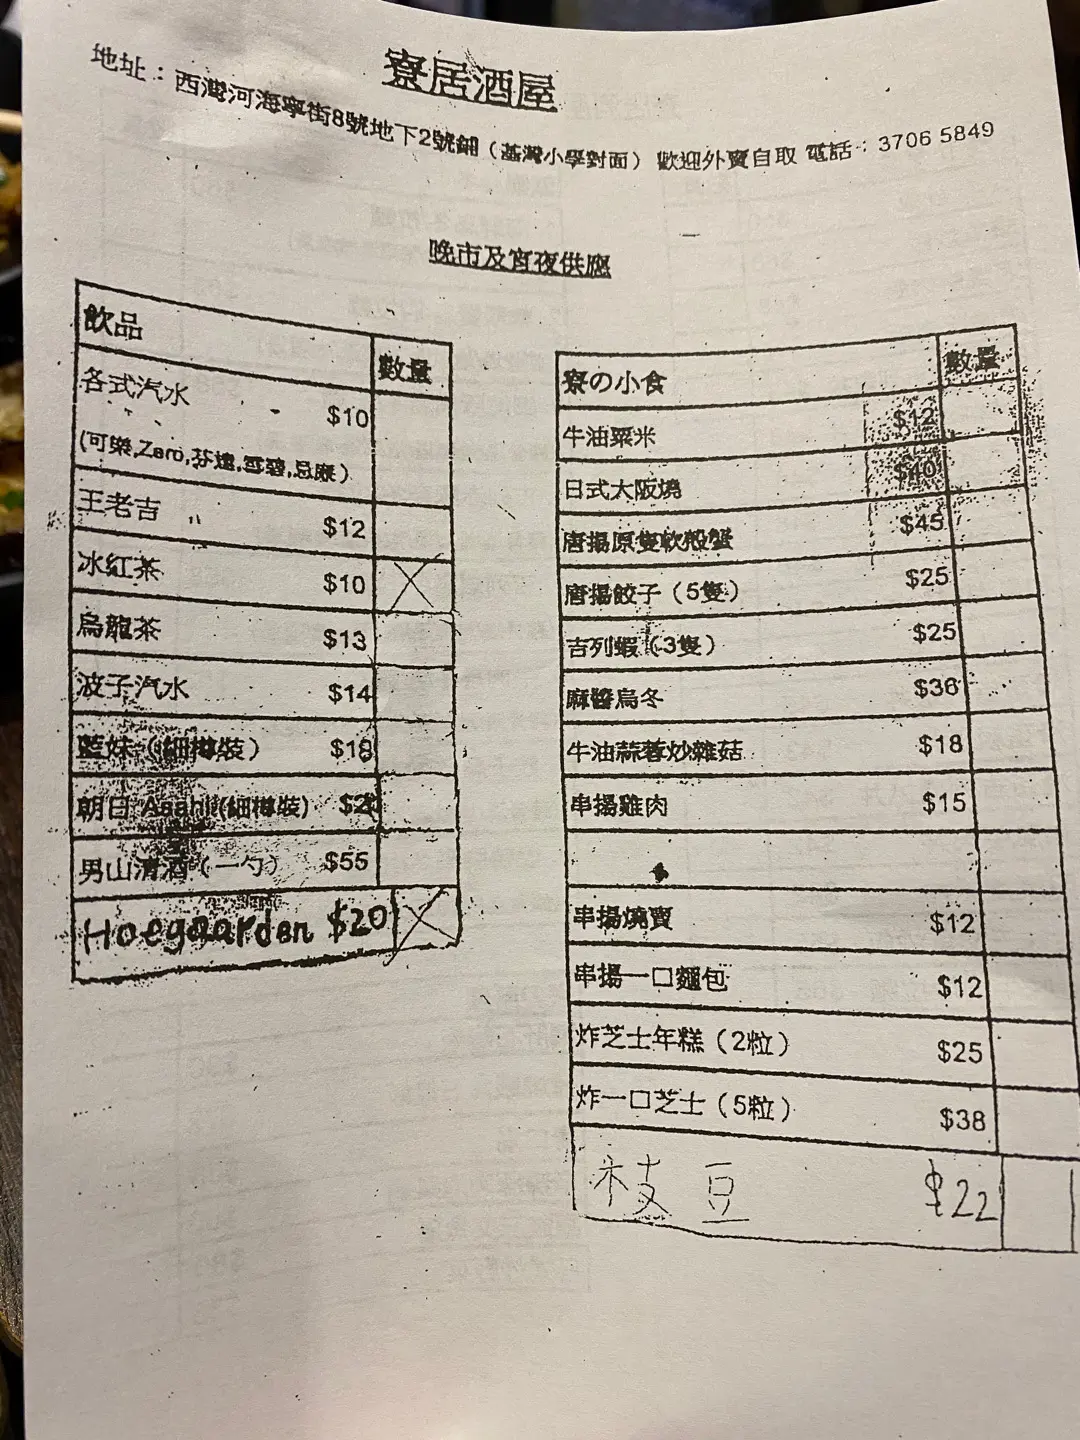 寮居酒屋
地址：西灣河海寧街8號地下2號鋪（基灣小學對面） 歡迎外賣自取 電話：3706 5849
晚市及宵夜供應
飲品 數量
各式汽水 $10
(可樂,Zero,芬達,雪碧,忌廉)
王老吉 $12
冰紅茶 $10
烏龍茶 $13
波子汽水 $14
藍妹（細樽裝） $18
朝日 Asahi(細樽裝)
男山清酒（一勺） $55
Hoegaarden $20
寮の小食 數量
牛油粟米 $12
日式大阪燒 $40
唐揚原隻軟殼蟹 $45
唐揚餃子（5隻） $25
吉列蝦（3隻） $25
麻醬烏冬 $36
牛油蒜蓉炒雜菇 $18
串揚雞肉 $15
串揚燒賣 $12
串揚一口麵包 $12
炸芝士年糕（2粒） $25
炸一口芝士（5粒） $38
枝豆 $22